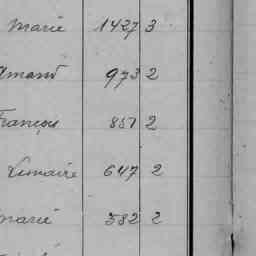 Marie 1427 3
Amand 973 2
François 857 2
Lemaire 647 2
Marie 582 2